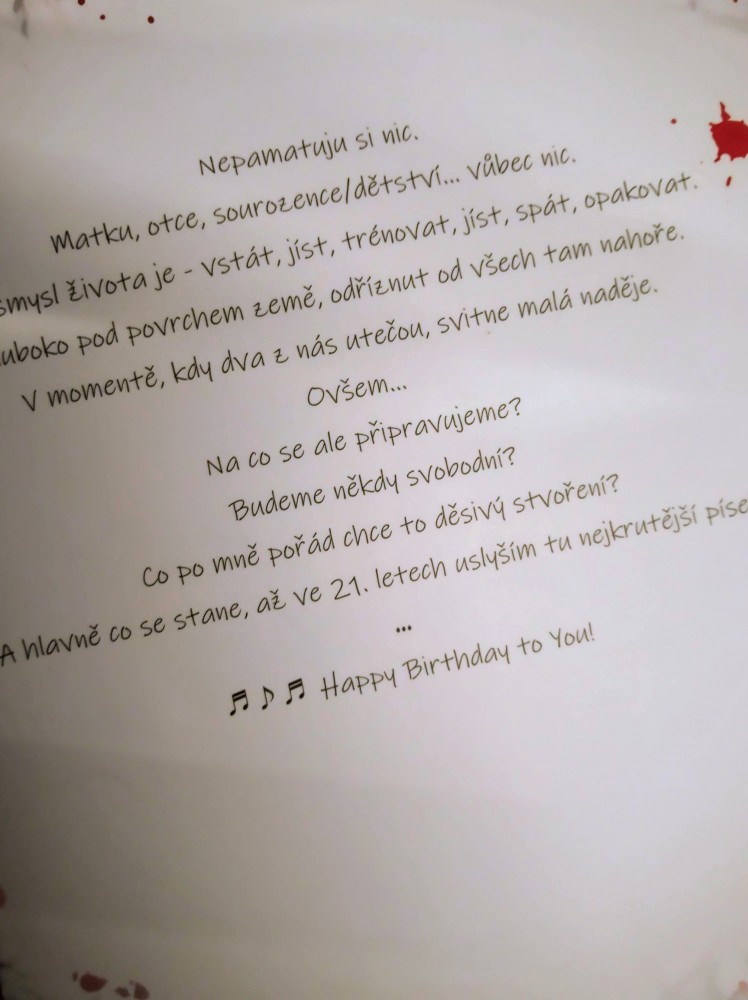 Nepamatuju si nic.
Matku, otce, sourozence/dětství... vůbec nic.
smysl života je - vstát, jíst, trénovat, jíst, spát, opakovat.
pod povrchem země, odříznut od všech tam nahoře.
V momentě, kdy dva z nás utečou, svitne malá naděje.
Ovšem...
Na co se ale připravujeme?
Budeme někdy svobodní?
Co po mně pořád chce to děsivý stvoření?
A hlavně co se stane, až ve 21. letech uslyším tu nejkrutější
...
♬ ♪ ♬ Happy Birthday to You!